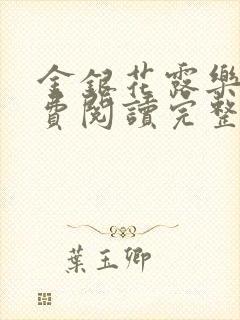 金銀花露樂
費閱讀完整
葉玉卿